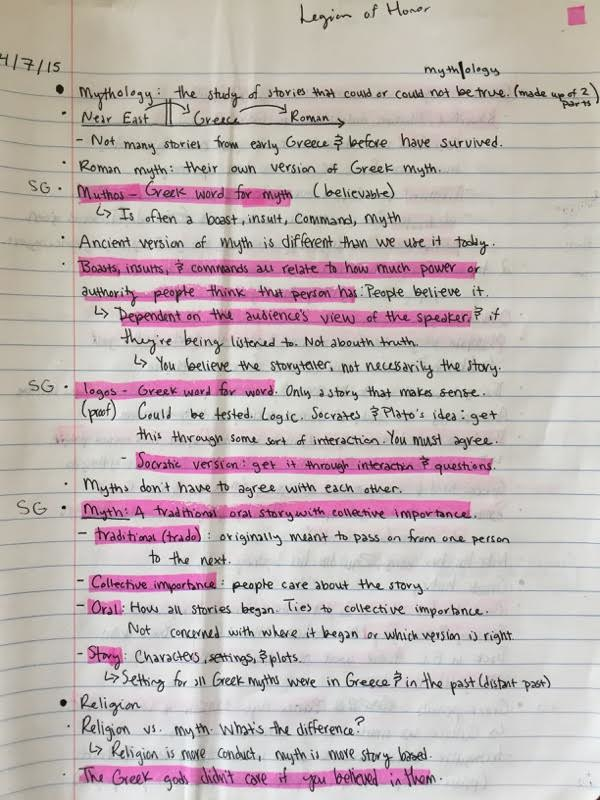 Legion of Honor
4/7/15
myth|ology
• Mythology: the study of stories that could or could not be true. (made up of 2 parts)
• Near East → Greece → Roman →
- Not many stories from early Greece & before have survived.
• Roman myth: their own version of Greek myth.
SG • Muthos - Greek word for myth (believable)
↳ Is often a boast, insult, command, myth
• Ancient version of myth is different than we use it today.
• Boasts, insults, & commands all relate to how much power or
authority people think that person has. People believe it.
↳ Dependent on the audience's view of the speaker, & if
they're being listened to. Not abouth truth.
↳ You believe the storyteller, not necessarily the story.
SG • logos - Greek word for word. Only a story that makes sense.
(proof) Could be tested. Logic. Socrates & Plato's idea: get
this through some sort of interaction. You must agree.
- Socratic version: get it through interaction & questions.
• Myths don't have to agree with each other.
SG • Myth: A traditional oral story with collective importance.
- traditional (trado): originally meant to pass on from one person
to the next.
- Collective importance: people care about the story.
- Oral: How all stories began. Ties to collective importance.
Not concerned with where it began or which version is right
- Story: Characters, settings, & plots.
↳ Setting for all Greek myths were in Greece & in the past (distant past)
• Religion
• Religion vs. myth. What's the difference?
↳ Religion is more conduct, myth is more story based.
• The Greek gods didn't care if you believed in them.